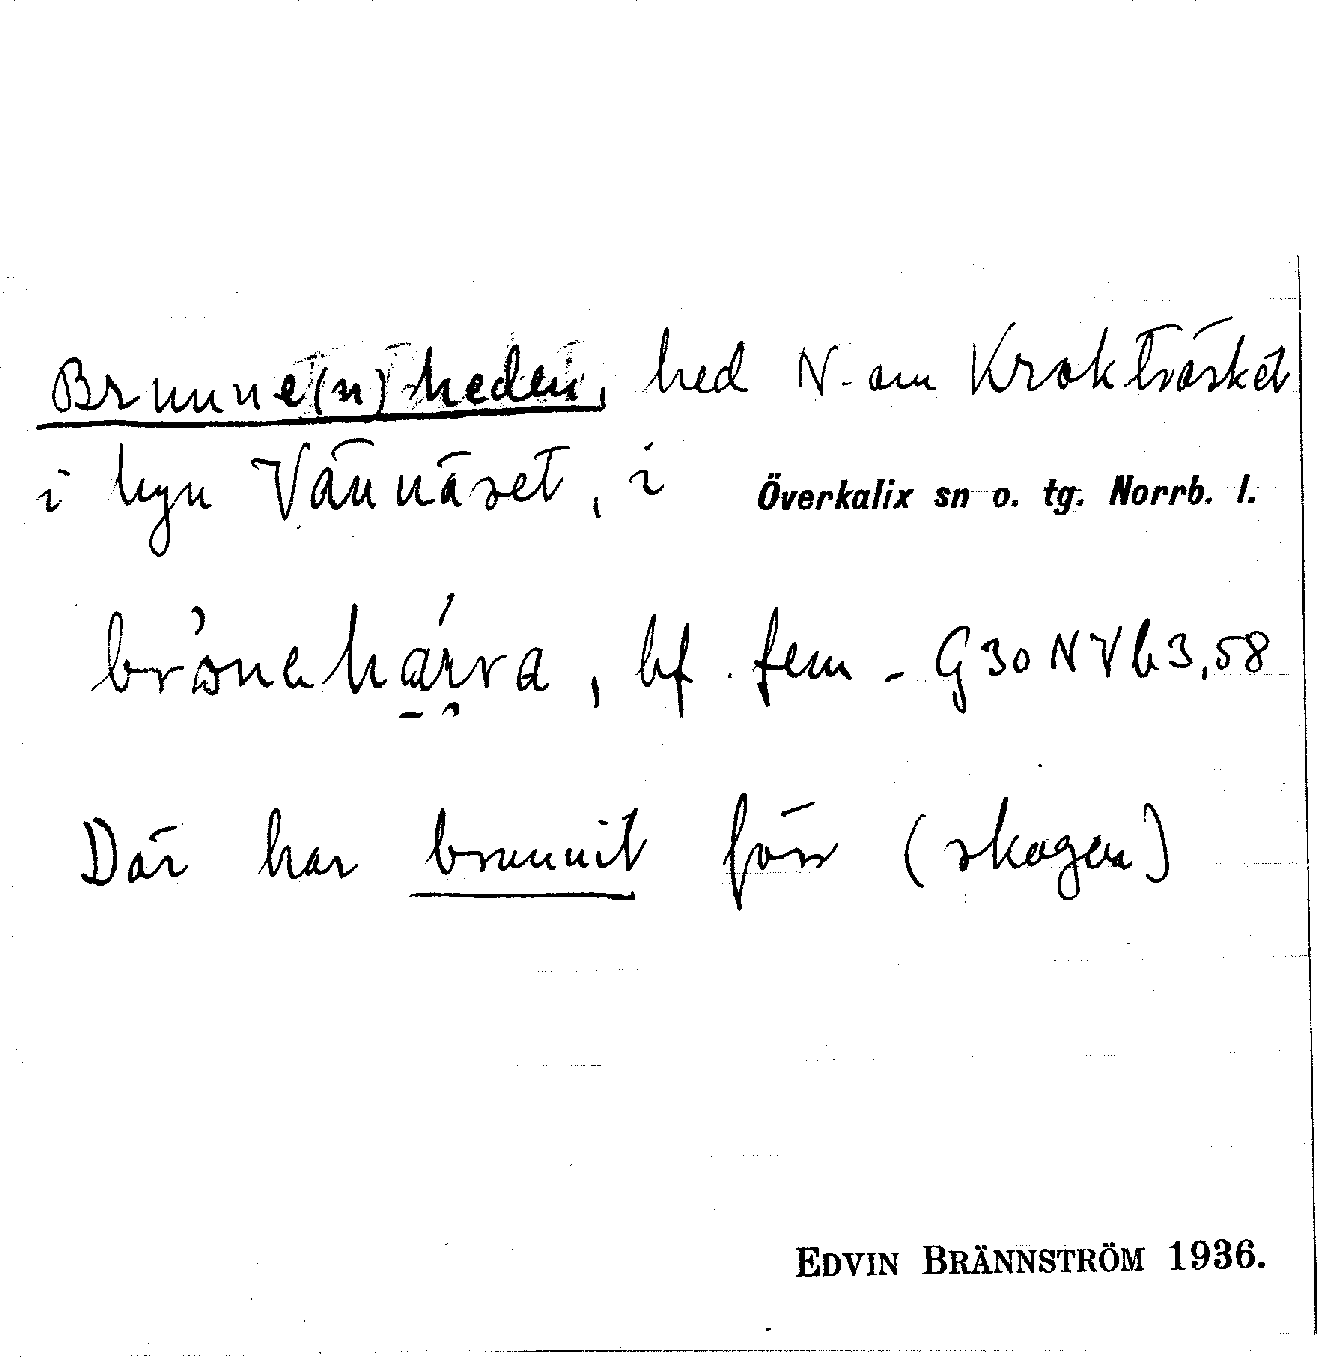 Brunne(n)heden, hed N. om Kroktväsket
i byn Vännäset, i Överkalix sn o. tg. Norrb. l.
bf. fem. G30NVb3,58
Där har brunnit förr (skogen)
EDVIN BRÄNNSTRÖM 1936.